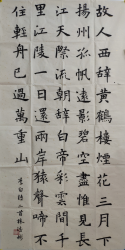 故人西辞黄鶴樓煙花三月下
揚州孤帆遠影碧空盡惟見長
江天際流朝辞白帝彩雲間千
里江陵一日還兩岸猿聲啼不
住輕舟已過萬重山
李白詩二首